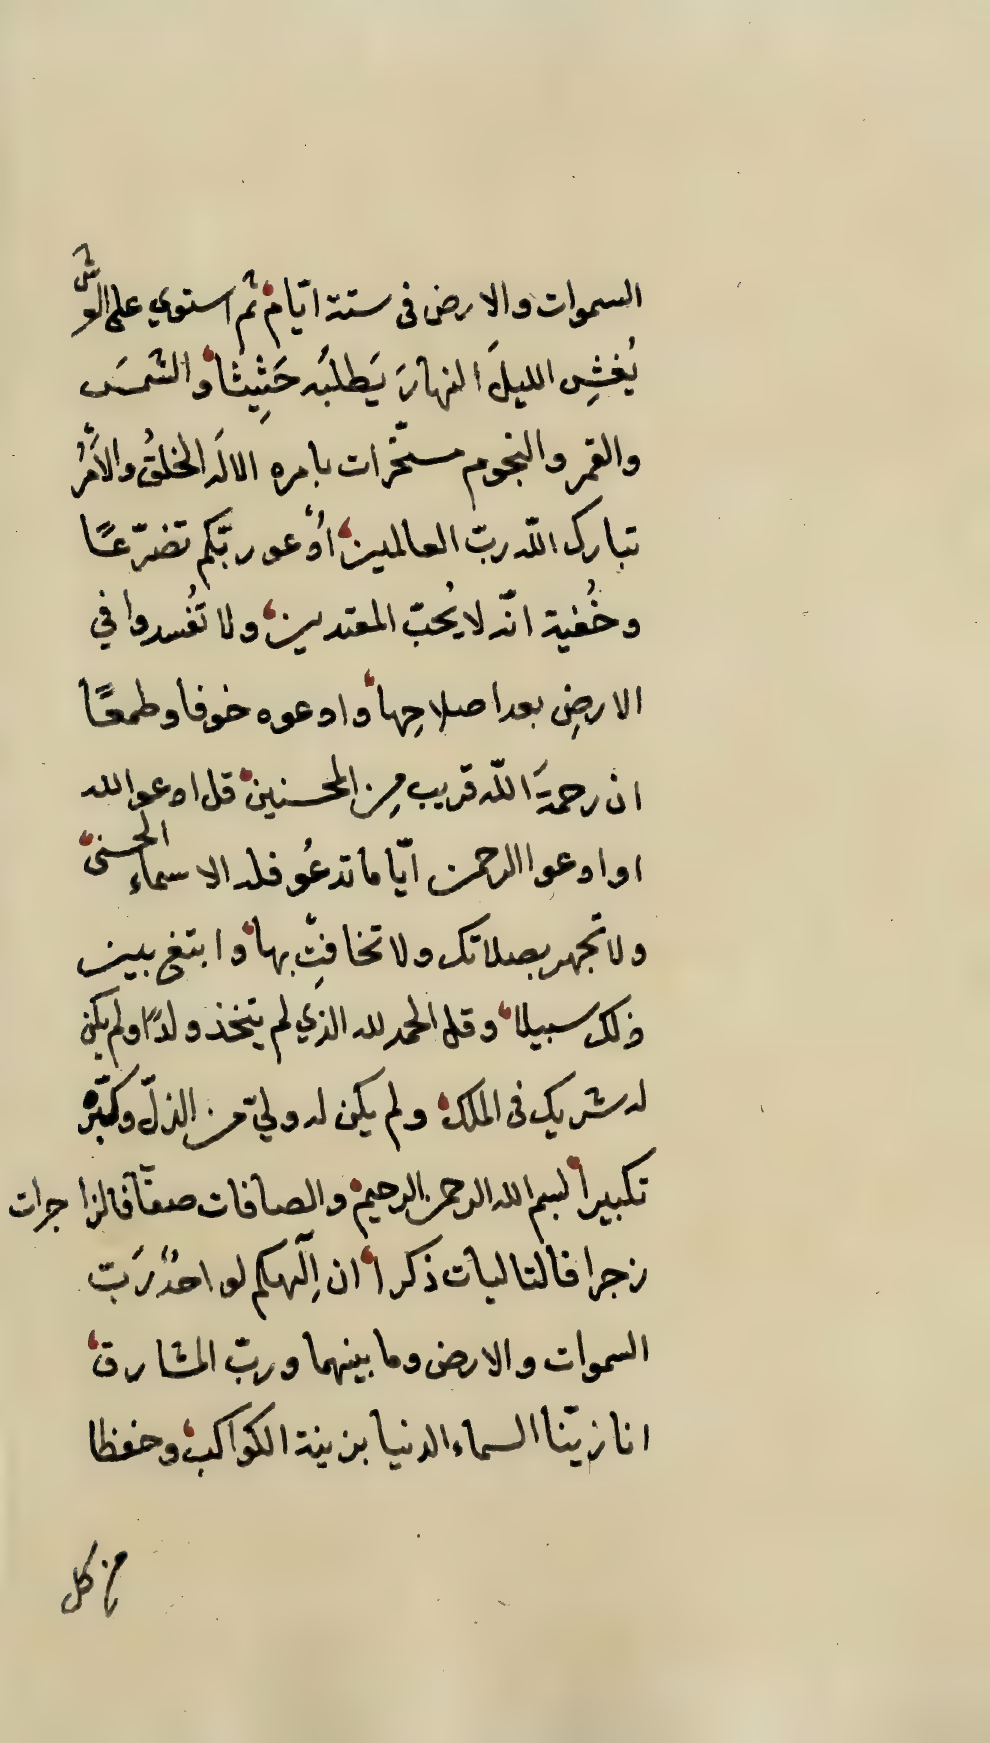 السموات والارض فى ستة ايّام ثم استوي على العرش
يُغشِى الليلَ النهارَ يَطلبُه حَثِيثًا والشمسَ
والقمر والنجوم مسخّرات بامره الا لَه الخلقُ والاَمرُ
تبارك اللّه ربّ العالمين اُدعو ربّكم تضرّعًا
وخُفية انّه لا يُحبّ المعتدين ولا تُفسدوا في
الارضِ بعد اصلاحِها وادعوه خوفا وطمعًا
ان رحمةَ اللّه قريب مِن المحسنين قل ادعوا الله
او ادعوا الرحمن ايّا ما تدعُو فله الاسماء الحسنى
ولا تجهر بصلاتك ولا تخافِتْ بها وابتغ بين
ذلك سبيلا وقل الحمد لله الذي لم يتخذ ولدًا ولم يكن
له شريك فى الملك ولم يكن له وليّ من الذلّ وكبّره
تكبيرا بسم الله الرحمن الرحيم والصافات صفّا فالزاجرات
زجرا فالتاليات ذكرا ان اِلٓهكم لواحدٌ رَبّ
السموات والارض وما بينهما وربّ المشارق
انا زيّنا السماء الدنيا بزينة الكواكب وحفظا
من كل